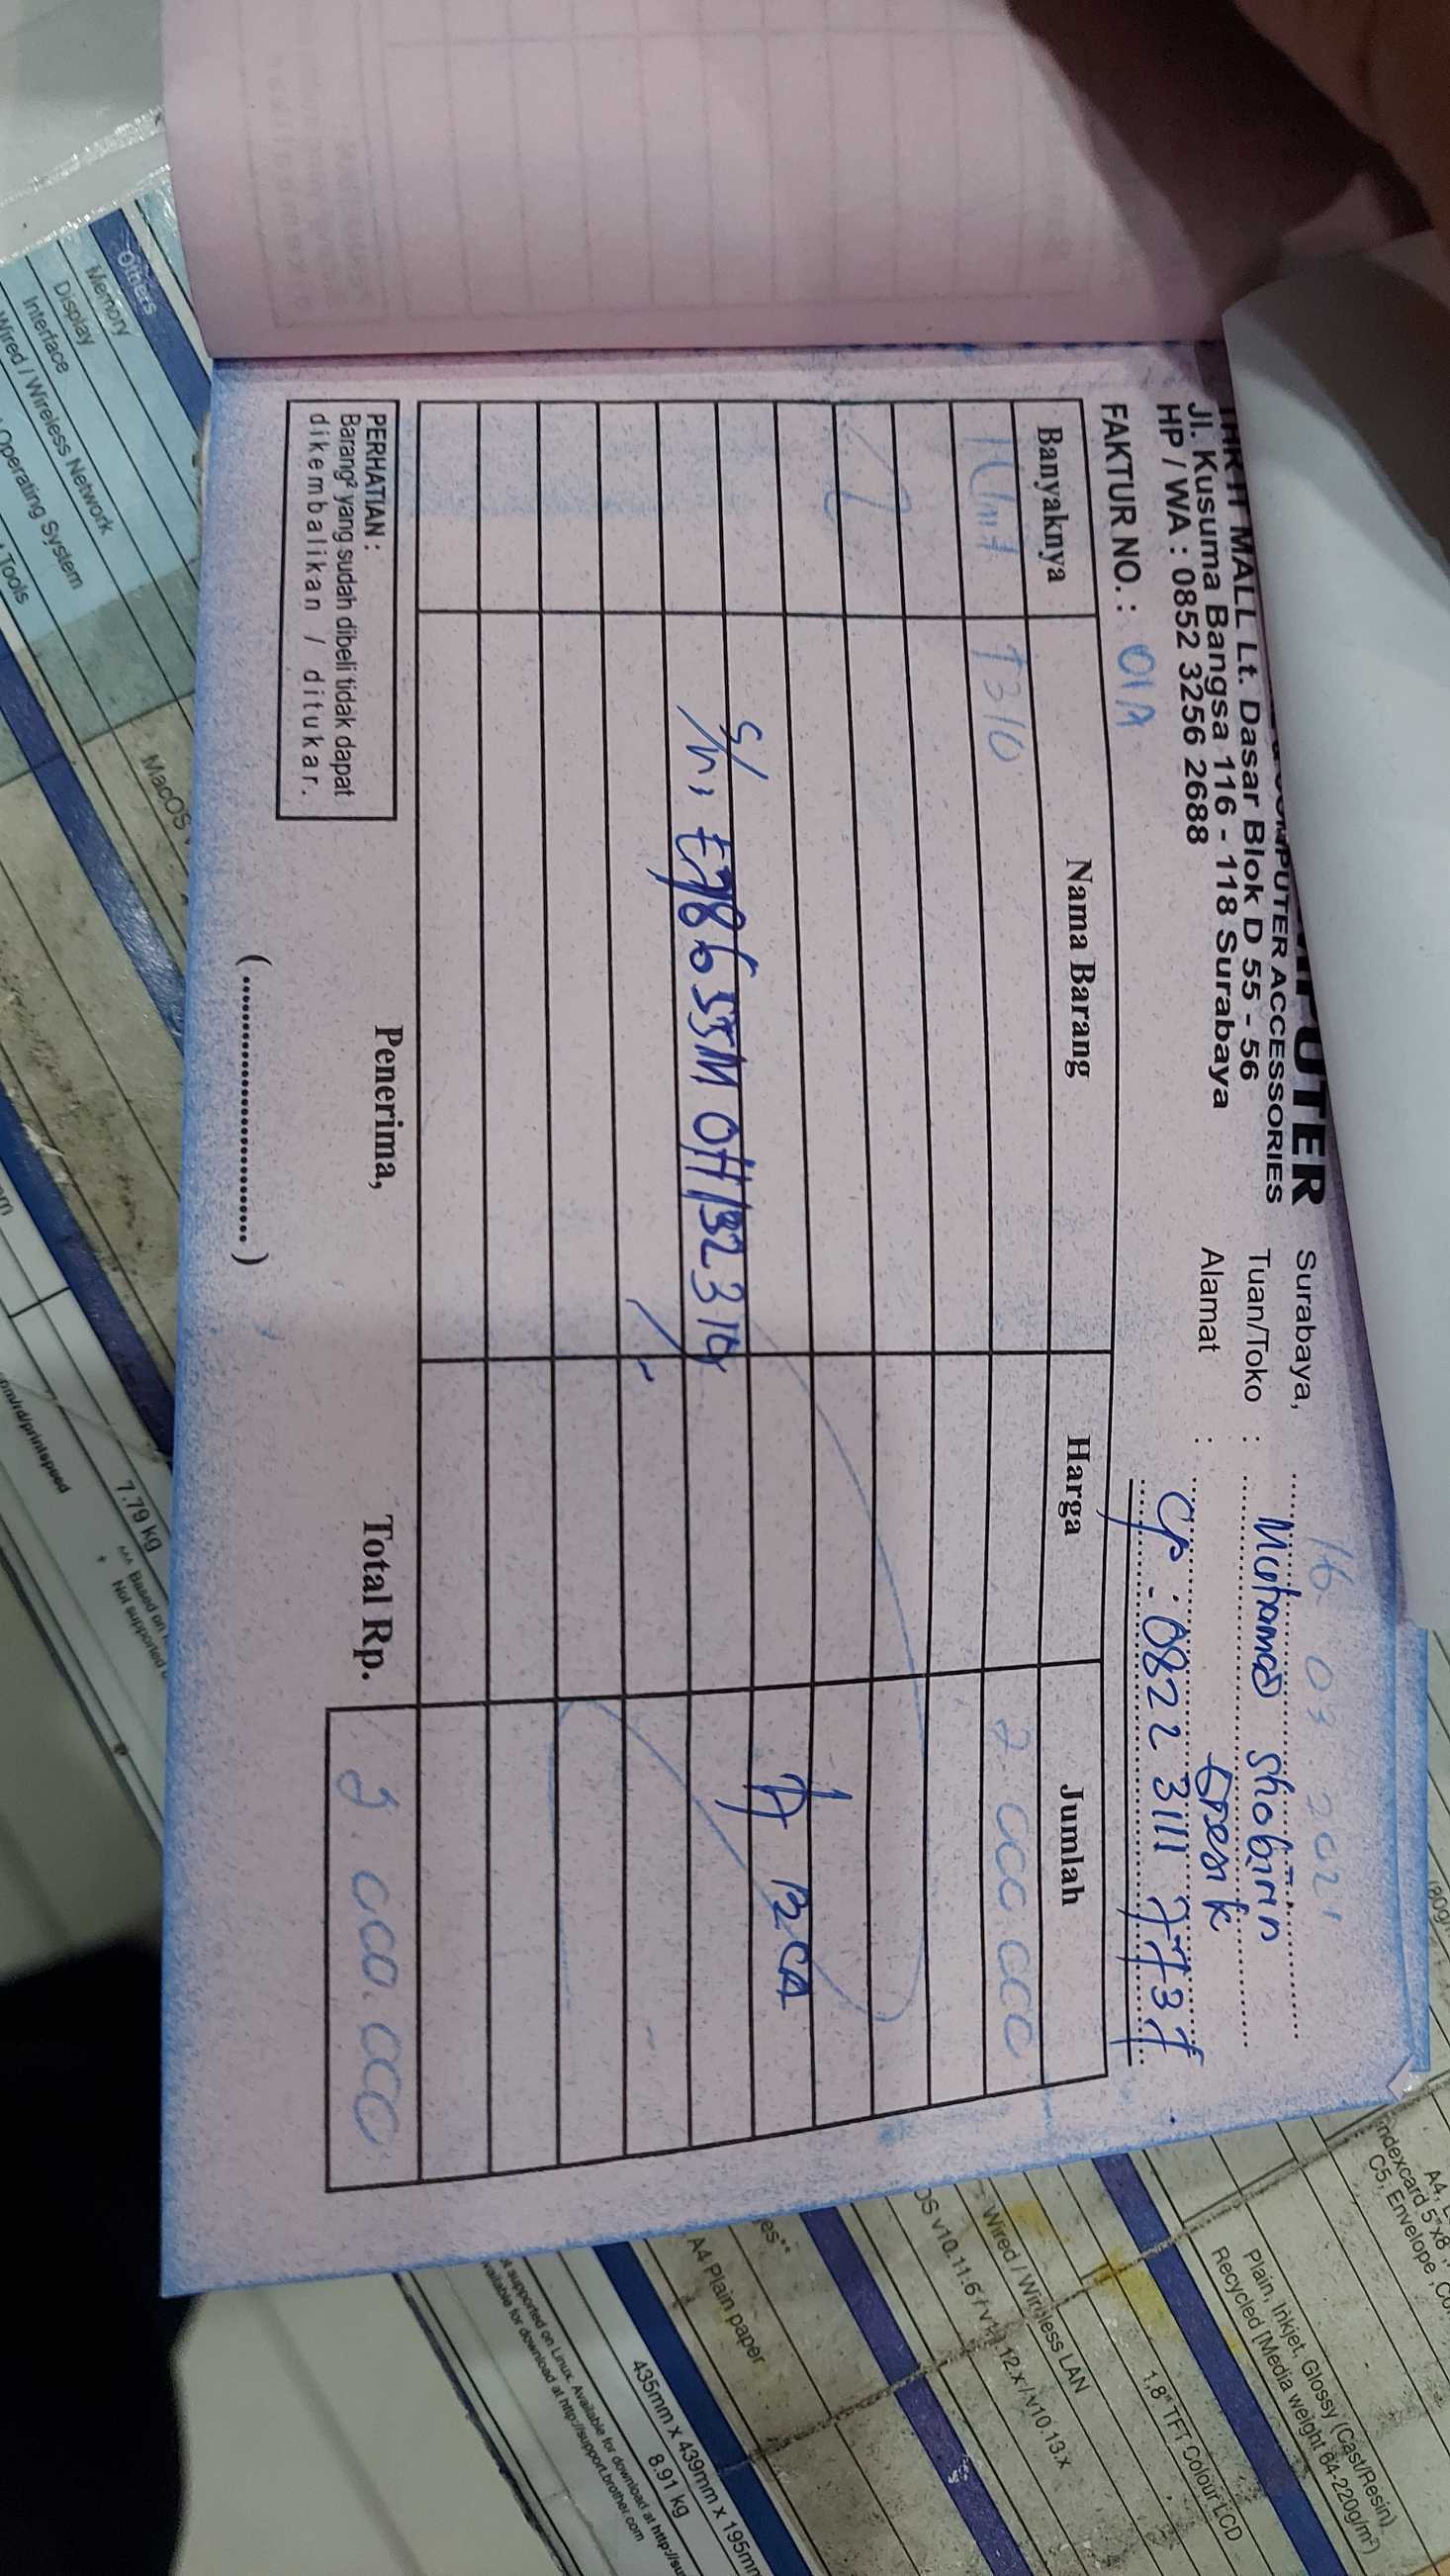 COMPUTER ACCESSORIES
MALL Lt. Dasar Blok D 55 - 56
Jl. Kusuma Bangsa 116 - 118 Surabaya
HP / WA : 0852 3256 2688
Surabaya, 16 03 2021
Tuan/Toko : Muhamad Shobirin
Alamat : Gresik
CP : 0822 3111 7737
FAKTUR NO. : 01A
Banyaknya Nama Barang Harga Jumlah
1 Unit T310 2.000.000
BCA
S/N:
PERHATIAN :
Barang² yang sudah dibeli tidak dapat
dikembalikan / ditukar.
Penerima,
(........................)
Total Rp. 2.000.000
Others
Memory
Display
Interface
Wired / Wireless Network
Operating System
Tools
MacOS
7.79 kg
Based on
Not supported
A4,
Indexcard 5"x8"
C5, Envelope
Plain, Inkjet, Glossy (Cast/Resin)
Recycled [Media weight 64-220g/m²]
1.8" TFT Colour LCD
Wired / Wireless LAN
A4 Plain paper
435mm x 439mm x 195mm
8.91 kg